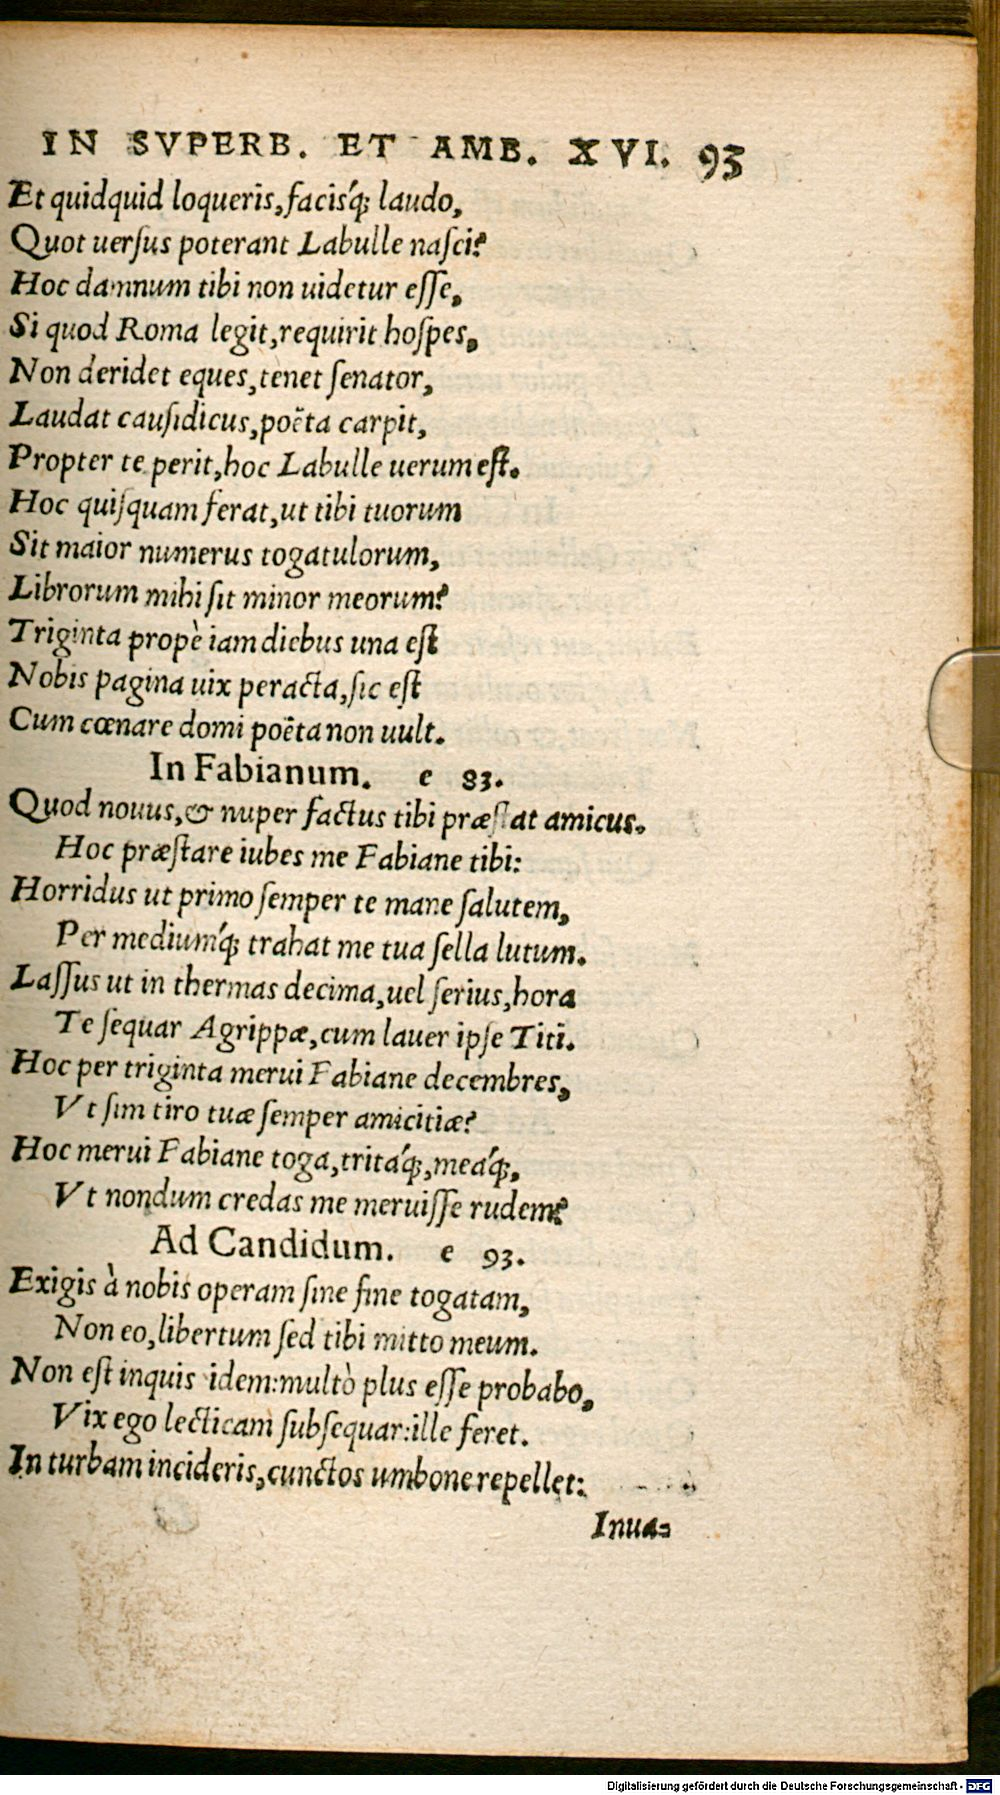 IN SVPERB. ET AMB. XVI. 93
Et quidquid loqueris, facisq́; laudo,
Quot uersus poterant Labulle nasci?
Hoc damnum tibi non uidetur esse,
Si quod Roma legit, requirit hospes,
Non deridet eques, tenet senator,
Laudat causidicus, poëta carpit,
Propter te perit, hoc Labulle uerum est.
Hoc quisquam ferat, ut tibi tuorum
Sit maior numerus togatulorum,
Librorum mihi sit minor meorum?
Triginta propè iam diebus una est
Nobis pagina uix peracta, sic est
Cum cœnare domi poëta non uult.
In Fabianum. e 83.
Quod nouus, & nuper factus tibi præstat amicus.
Hoc præstare iubes me Fabiane tibi:
Horridus ut primo semper te mane salutem,
Per mediumq́; trahat me tua sella lutum.
Lassus ut in thermas decima, uel serius, hora
Te sequar Agrippæ, cum lauer ipse Titi.
Hoc per triginta merui Fabiane decembres,
Vt sim tiro tuæ semper amicitiæ?
Hoc merui Fabiane toga, tritaq́;, meaq́;,
Vt nondum credas me meruisse rudem?
Ad Candidum. e 93.
Exigis à nobis operam sine fine togatam,
Non eo, libertum sed tibi mitto meum.
Non est inquis idem: multò plus esse probabo,
Vix ego lecticam subsequar: ille feret.
In turbam incideris, cunctos umbone repellet:
Inua=
Digitalisierung gefördert durch die Deutsche Forschungsgemeinschaft - DFG